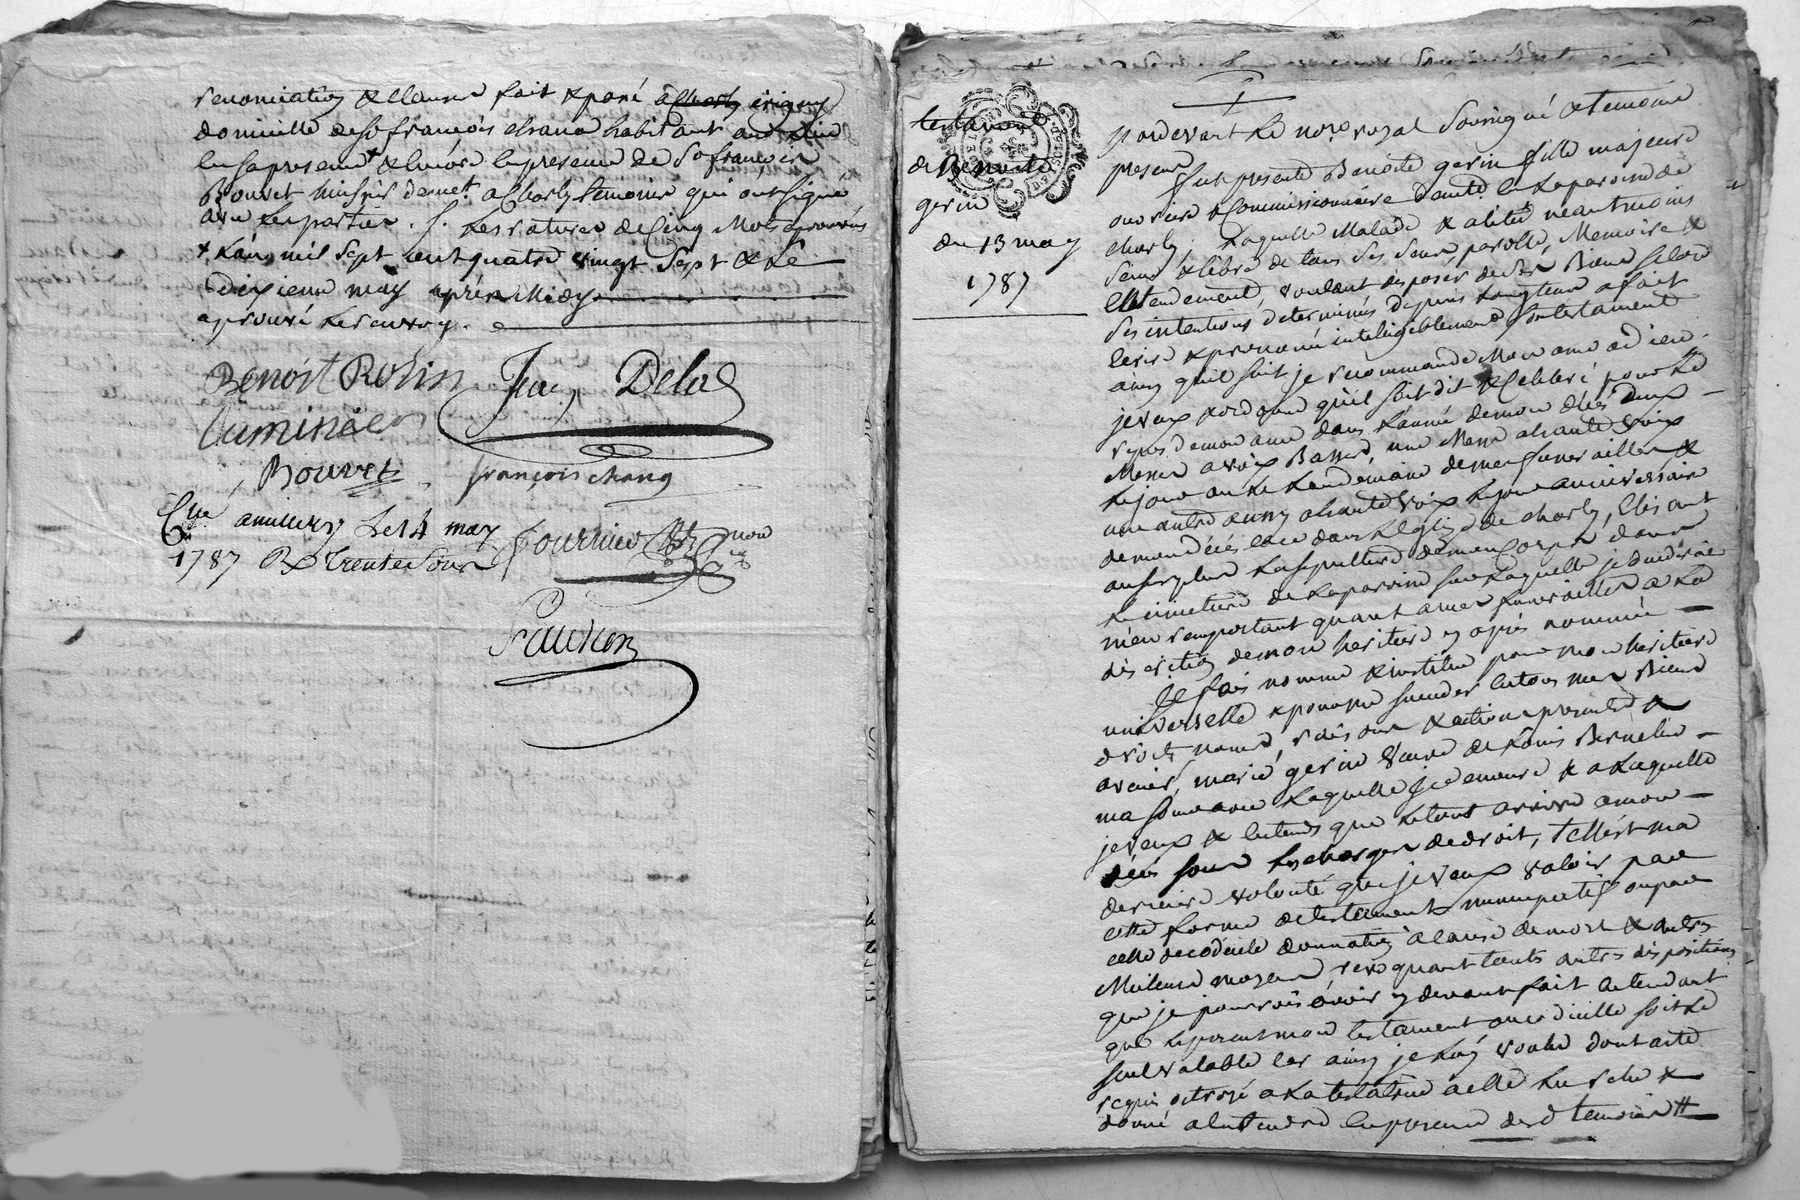 renonciation & clauses fait & passé a Charly irigny
domicille de sr françois chana habitant
en sa presence & encore en presence de sr françois
Bouvet huissier demet. a Charly temoins qui ont signé
avec les parties . f. les ratures de cinq mots aprouvés
+ l'an mil sept cent quatre vingt sept & le
dixieme may après Midy
aprouvé le renvoy.
Benoit Robin Jean Delas
Bouvet françois chana
Cllé a milliery le 14 may
1787 R trente sous fournier
testament
de Benoite
gerin
du 13 may
1787
pardevant le nore royal soussigné & temoins
presens fut presente Benoite gerin fille majeure
ouvriere & Commissionnaire en la paroisse de
charly, laquelle Malade & alitée neantmoins
saine & libre de tous ses sens, parolle, Memoire &
Entendement, voulant disposer de ses Biens selon
ses intentions determinés depuis longtems a fait
écrire & prononcé inteligiblement son testament
ainsy qu'il suit je recommande Mon ame a dieu.
je veux & ordonne qu'il soit dit & Celebré pour le
repos de mon ame dans l'année de mon décès deux
Messes a voix Basse, une Messe a haute voix
le jour ou le lendemain de mes funerailles &
une autre aussy a haute voix le jour anniversaire
de mon décès le tout dans l'Eglise de charly, Elisant
au surplus la sepulture de mon Corps dans
le cimetiere de la parroisse sur laquelle je decederai
m'en remportant quant a mes funerailles a la
discretion de mon heritiere cy après nommée
Je fais nomme & institue pour mon heritiere
universelle & pour me succeder en tous mes Biens
droits noms, raisons & actions presents &
avenir, marie gerin veuve de Louis Bernelin
ma soeur avec laquelle je demeure & a laquelle
je veux & entends que le tout arrive a mon
décès sous les charges de droit, telle est ma
derniere volonté que je veux valoir par
cette forme de testament nuncupatif ou par
celle de codicile donnation a cause de mort & autres
Meilleurs moyens, revoquant touts autres dispositions
que je pourrois avoir cy devant fait entendant
que le present mon testament ou codicille soit le
seul valable car ainsy je l'ay voulu dont acte
requis octroyé a la testatrice a elle lu relu &
donné a entendre en presence desd temoins #